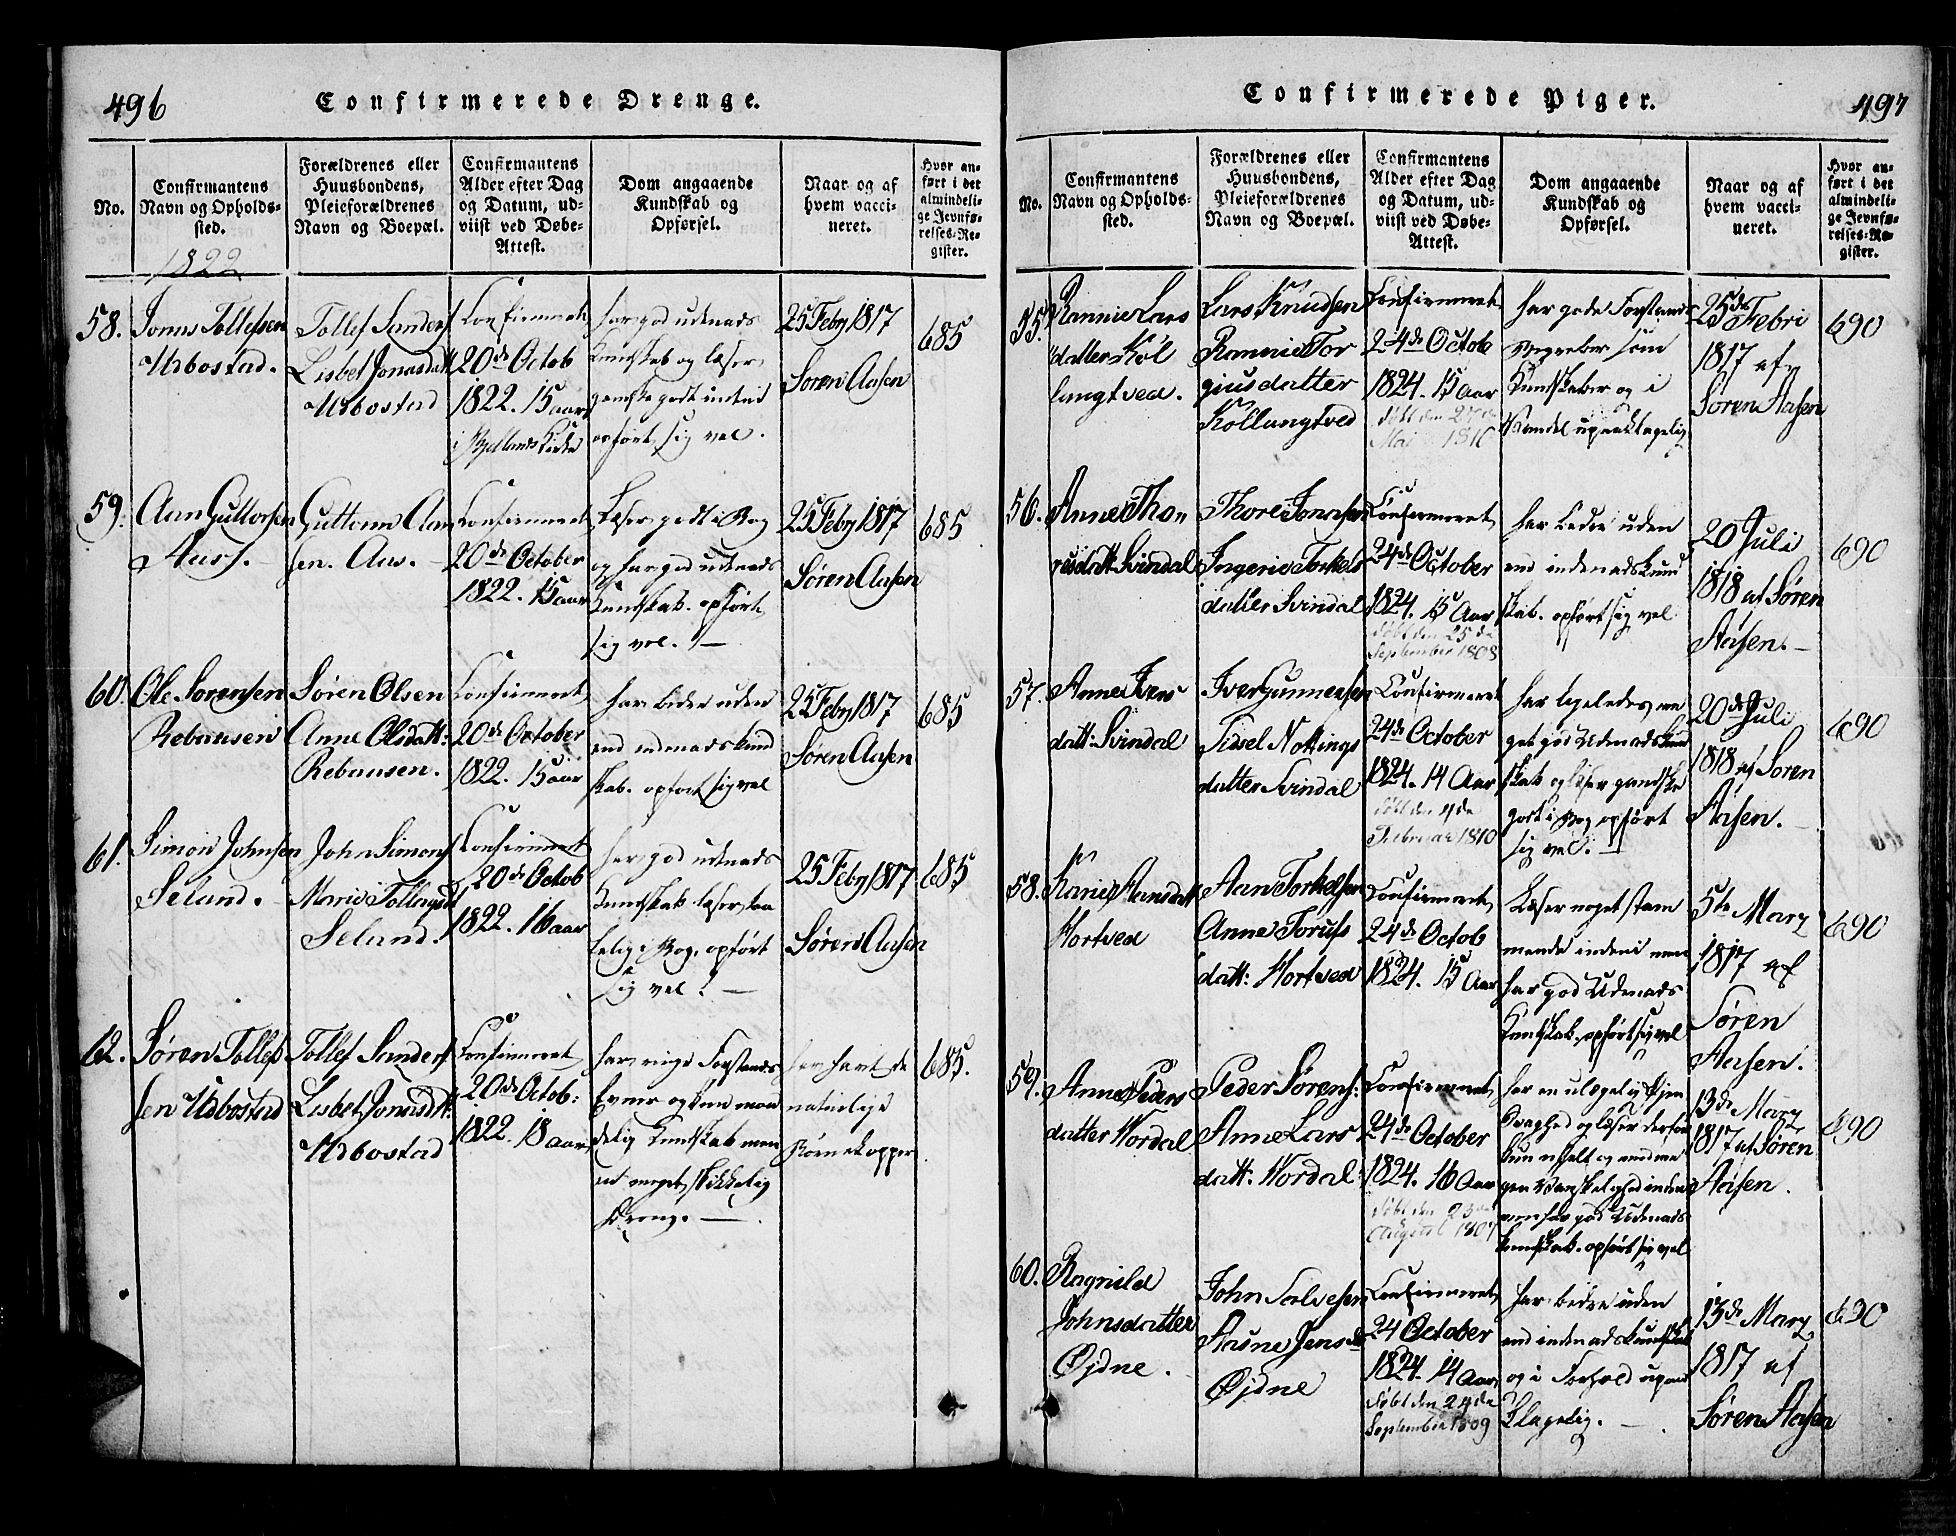 496
Confirmerede Drenge.
No.
Confirmantens
Navn og Opholds-
sted.
1822
Forældrenes eller
Huusbondens,
Pleieforældrenes
Navn og Boepæl.
Confirmantens
Alder efter Dag
og Datum, ud-
viist ved Døbe-
Attest.
Dom angaaende
Kundskab og
Opførsel.
Naar og af
hvem vacci-
neret.
Hvor an-
ført i det
almindeli-
ge Jevnfø-
relses-Re-
gister.
58.
Jonas Tollefsen
Udbostad.
Tollef Sanders
Lisbet Jonasdatt
Udbostad
Confirmeret
20de Octob
1822. 15 aar
i Bjellands Kirke
har god udenads
Kundskab og læser
gandske godt indeni
opført sig vel.
25 Feby 1817
Søren Aasen
685
59.
Aan Guttorsen
Aas.
Guttorm Aan
sen. Aas.
Confirmeret
20de October
1822. 15 aar
Læser godt i Bog
og har god udenads
Kundskab. opført
sig vel. —
25 Feby 1817
Søren Aasen
685
60.
Ole Sørensen
Rebausen
Søren Olsen
Anne Olsdatt:
Rebausen.
Confirmeret
20de October
1822. 15 aar
har bedre uden
end indenadskund
skab. opført sig vel
25 Feby 1817
Søren Aasen
685
61.
Simon Johnsen
Seland.
John Simons
Marie Tollagsd
Seland.
Confirmeret
20de Octob
1822. 16 aar
har god udenads
Kundskab læser taa
lelig i Bog, opført
sig vel. —
25 Feby 1817
Søren Aasen
685
62.
Søren Tollef
sen Udbostad
Tollef Sanders
Lisbet Jonasdt:
Udbostad
Confirmeret
20de Octob:
1822. 18 aar
har ringe Forstands
Evner og kun maa
delig Kundskab men
er meget skikkelig
Dreng. —
har havt de
naturlige
Børnekopper
685.
497
Confirmerede Piger.
No.
Confirmantens
Navn og Opholds-
sted.
Forældrenes eller
Huusbondens,
Pleieforældrenes
Navn og Boepæl.
Confirmantens
Alder efter Dag
og Datum, ud-
viist ved Døbe-
Attest.
Dom angaaende
Kundskab og
Opførsel.
Naar og af
hvem vacci-
neret.
Hvor an-
ført i det
almindeli-
ge Jevnfø-
relses-Re-
gister.
55.
Rannie Lars
datter Kol
langtved.
Lars Knudsen
Rannie Tor
giusdatter
Kollangtved
Confirmeret
24de Octob
1824. 15 Aar
født den
Mai 1810
har gode Forstands
Begreber som
Kundskaber og i
Vandel upaaklagelig
25de Febri
1817 af
Søren Aasen
690
56.
Anne Tho
resdatt. Svindal
Thore Jonasen
Ingerie Torkels
datter Svindal
Confirmeret
24de October
1824. 15 Aar
født den 25de
September 1808
har bedre uden
end indenadskund
skab. opført sig vel
20 Juli
1818 af Søren
Aasen. —
690
57.
Anne Ivers
datt: Svindal
Iver Gunnersen
Sidsel Nottings
datter Svindal
Confirmeret
24de October
1824. 14 Aar
født den 4de
Februar 1810
har ligeledes me
get god Udenadskund
skab og læser gandske
godt i Bog opført
sig vel. —
20de Juli
1818 af Søren
Aasen.
690
58.
Karie Aansdatt
Hortved
Aan Torkelsen
Anne Torufs
datt: Hortved
Confirmeret
24de Octob
1824. 15 Aar
Læser noget stam
mende indeni men
har god Udenads
Kundskab. opført sig vel
5te Marz
1817 af
Søren
Aasen.
690
59.
Anne Peders
datter Hordal
Peder Sørens:
Anne Lars
datt: Hordal
Confirmeret
24de October
1824. 16 Aar
født den 23de
August 1807
har en ulægelig Øjen
Svaghed og læser derfor
kun og med me
gen Vanskelighed indeni
men har god Udenads
kundskab. opført sig vel
13de Marz
1817 af Søren
Aasen.
690
60.
Ragnild
Johnsdatter
Øjdne.
John Salvesen
Aasne Jensd
Øjdne
Confirmeret
24 October
1824. 14 Aar
født den 24de
September 1809
har bedre uden
end indenadskundskab
og i Forhold upaa
klagelig. —
13de Marz
1817 af
Søren Aasen
690